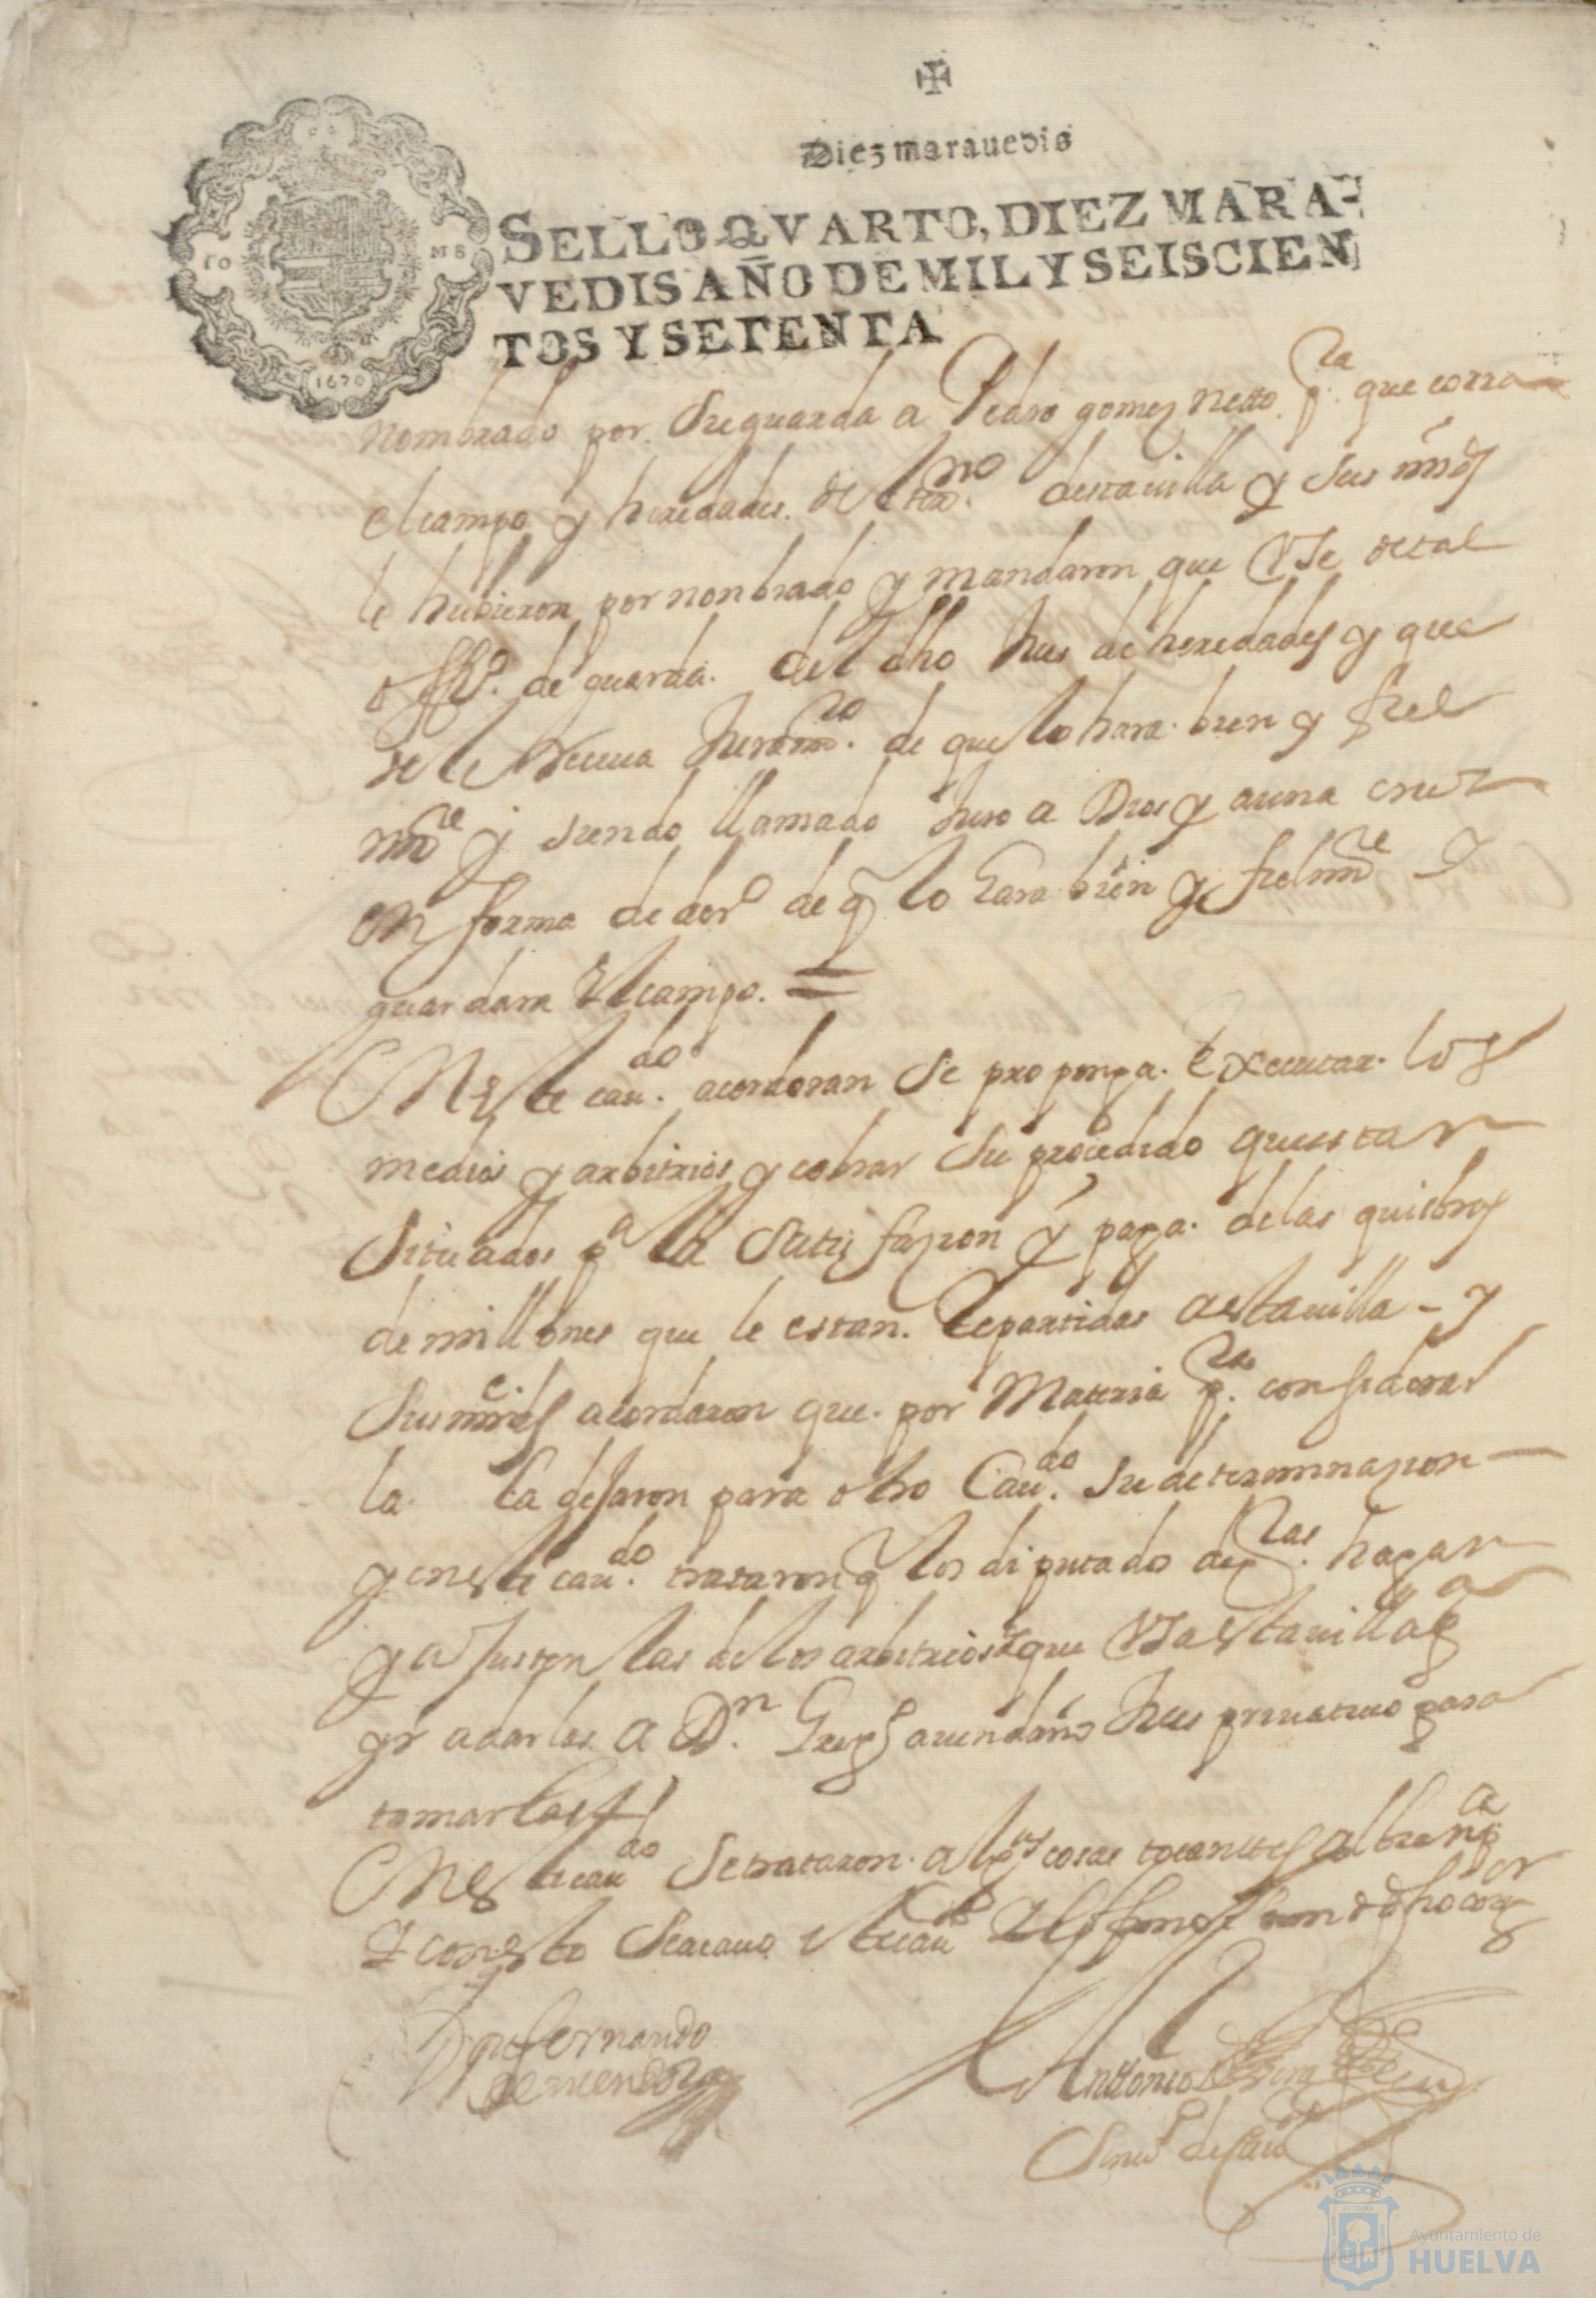 ✠
Diez marauedis
SELLO QVARTO, DIEZ MARA-
VEDIS AÑO DE MIL Y SEISCIEN
TOS Y SETENTA
10 MS
1670
nombrado por su guarda a Pedro gomez netto pra que corra
el campo y heredades del termno destauilla y sus mds
le hubieron por nonbrado y mandaron que Vse de tal
offo. de guarda. del dho de heredades y que
se le Reciua Juramto. de que lo hara bien y fiel
mte y siendo llamado Juro a Dios y a una cruz
en forma de dero de q lo hara bien y fielmte y
guardara el campo. =
En este caudo. acordaran se proponga. Executar. los
medios y arbitrios y cobrar su procedido que estan
situados pa la satisfazion y paga. de las quiebras
de millones que le estan. Repartidas a esta uilla - y
sus mrdes acordaron que. por Materia pra. considerar
la la dejaron para otro Caudo. su determinazion
y en este caudo. trataron q los diputados de qtas. hagan
y ajusten las de los arbitrios que Vsa esta uilla
yr a darlas a Dn. auendaño Jues priuatiuo para
tomarlas
En este caudo se trataron. algas cosas tocantes al bien
y con esto se acauo este caudo
Don fernando
de mendoza
Antonio
Escno de Caudo
Ayuntamiento de
HUELVA